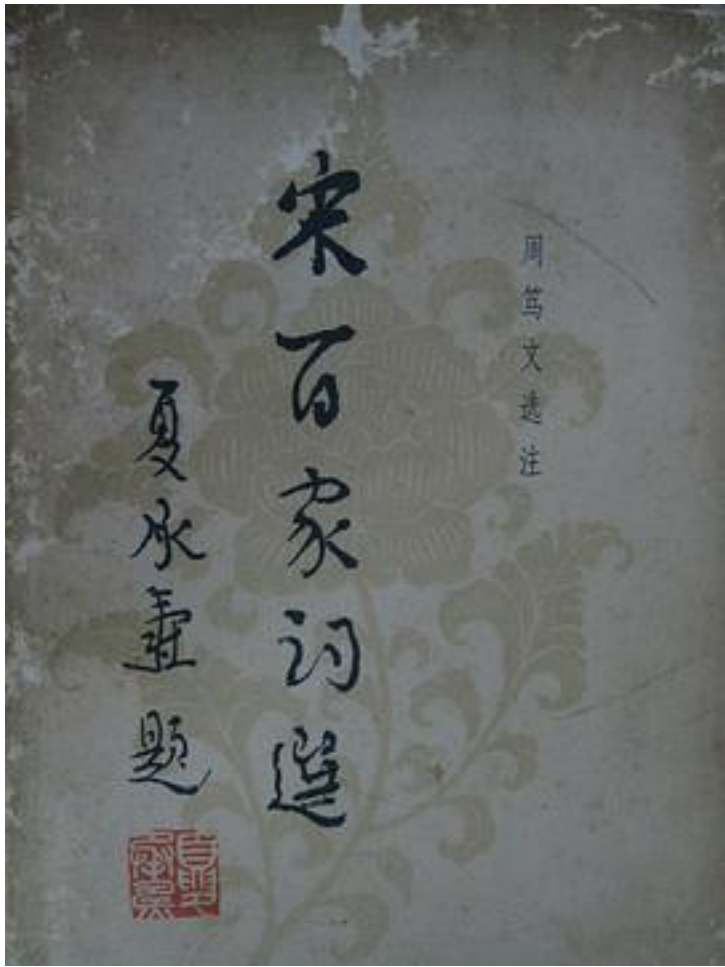 周笃文选注
宋百家词選
夏承燾题